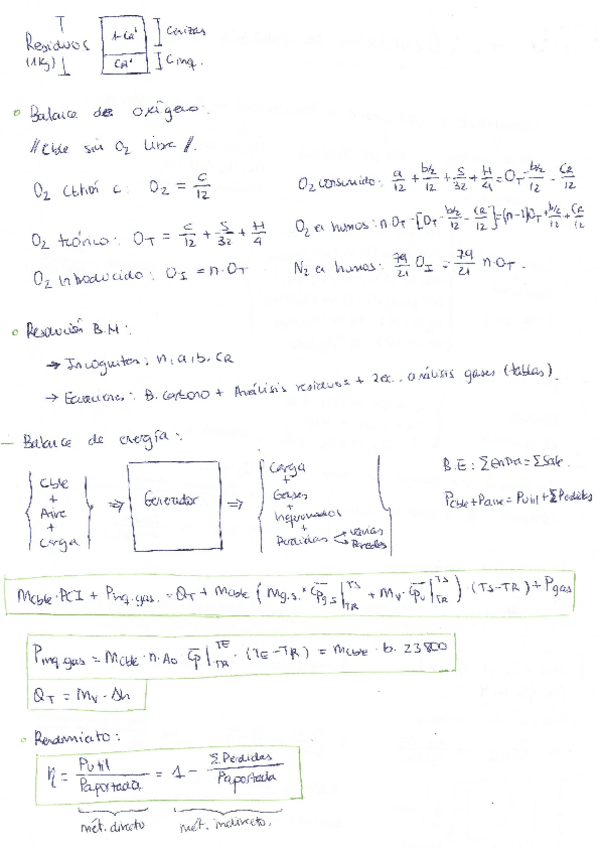 Residuos (1kg)
1-CR' } Cenizas
CR' } C inq.
Balance de oxígeno:
// Cble sin O2 libre //.
O2 C: O2 = C/12
O2 consumido: a/12 + b/2/12 + S/32 + H/4 = OT - b/2/12 - CR/12
O2 teórico: OT = C/12 + S/32 + H/4
O2 a humos: n·OT - [OT - b/2/12 - CR/12] = (n-1)OT + b/2/12 + CR/12
O2 introducido: OI = n·OT
N2 a humos: 79/21 OI = 79/21 n·OT.
Resolución B.M:
→ Incógnitas: n, a, b, CR
→ Ecuaciones: B. carbono + Análisis residuos + 2 ec. análisis gases (tablas).
- Balance de energía:
{ Cble + Aire + Carga } ⇒ Generador ⇒ { Carga + Gases + Inquemados + Perdidas < varias Paredes }
B.E: ΣEntra = ΣSale.
Pcble + Paire = Putil + ΣPerdidas
Mcble·PCI + Pinq.gas. = QT + Mcble (Mg.s.·Cpg.s |TS TR + Mv·Cpv |TS TR) (TS-TR) + Pgas
Pinq gas = Mcble·n·Ao Cp |TE TR · (TE-TR) = Mcble·b·23800
QT = Mv·Δh
Rendimiento:
η = Putil/Paportada = 1 - Σ Perdidas/Paportada
mét. directo mét. indirecto.